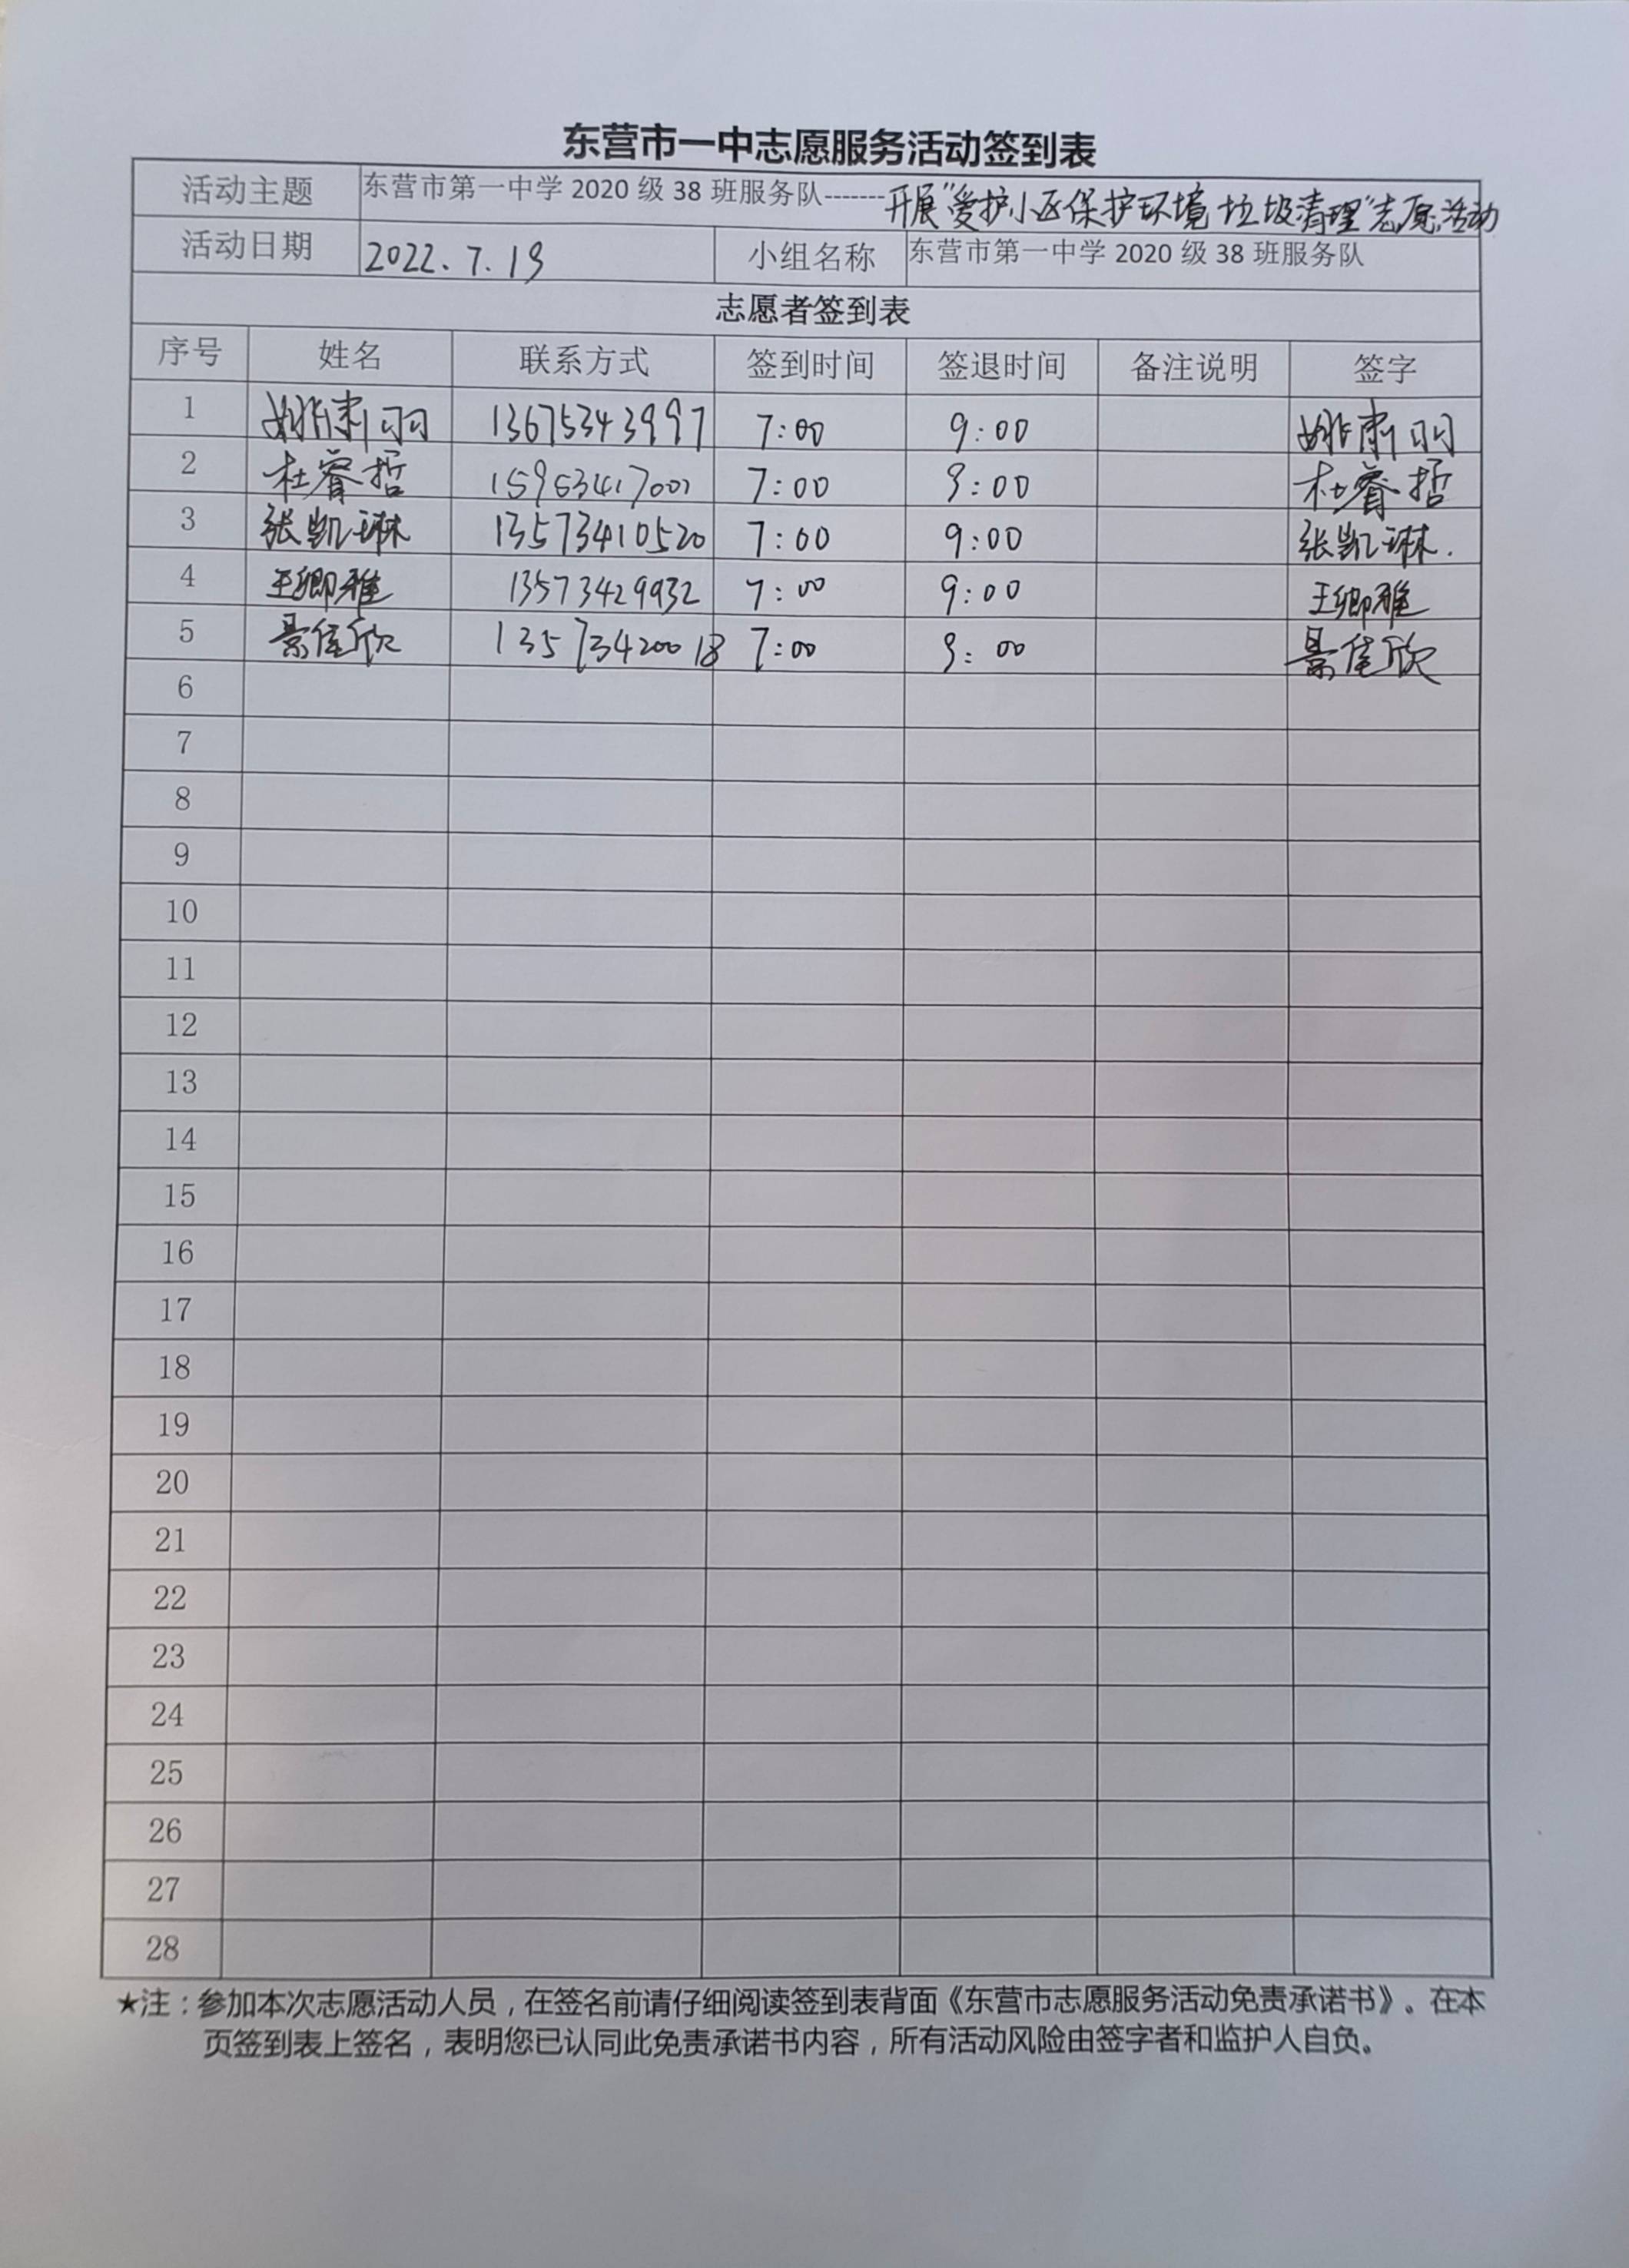 东营市一中志愿服务活动签到表
活动主题 东营市第一中学 2020 级 38 班服务队-------开展“爱护小区保护环境 垃圾清理”志愿活动
活动日期 2022.7.19 小组名称 东营市第一中学 2020 级 38 班服务队
志愿者签到表
序号 姓名 联系方式 签到时间 签退时间 备注说明 签字
1 姚肃羽 13675343997 7:00 9:00 姚肃羽
2 杜睿哲 7:00 9:00 杜睿哲
3 张凯琳 13573410520 7:00 9:00 张凯琳.
4 王卿雅 13573429932 7:00 9:00 王卿雅
5 景佳欣 13573420018 7:00 9:00 景佳欣
6
7
8
9
10
11
12
13
14
15
16
17
18
19
20
21
22
23
24
25
26
27
28
★注：参加本次志愿活动人员，在签名前请仔细阅读签到表背面《东营市志愿服务活动免责承诺书》。在本
页签到表上签名，表明您已认同此免责承诺书内容，所有活动风险由签字者和监护人自负。